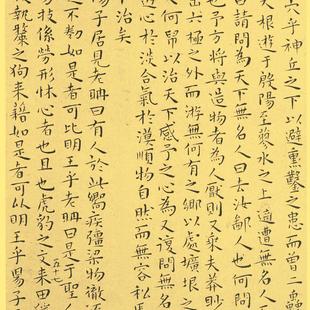 穴乎神丘之下以避熏鑿之患而曾二蟲
天根遊於殷陽至蓼水之上適遭無名人
曰請問為天下無名人曰去汝鄙人也何問
也予方將與造物者為人厭則又乘夫莽眇
出六極之外而游無何有之鄉以處壙埌之
又何帠以治天下感予之心為又復問無
遊心於淡合氣於漠順物自然而無容私
下治矣
陽子居見老聃曰有人於此嚮疾彊梁物徹
不勌如是者可比明王乎老聃曰是于聖人
技係勞形怵心者也且也虎豹之文來田
執斄之狗來藉如是者可以明王乎陽子